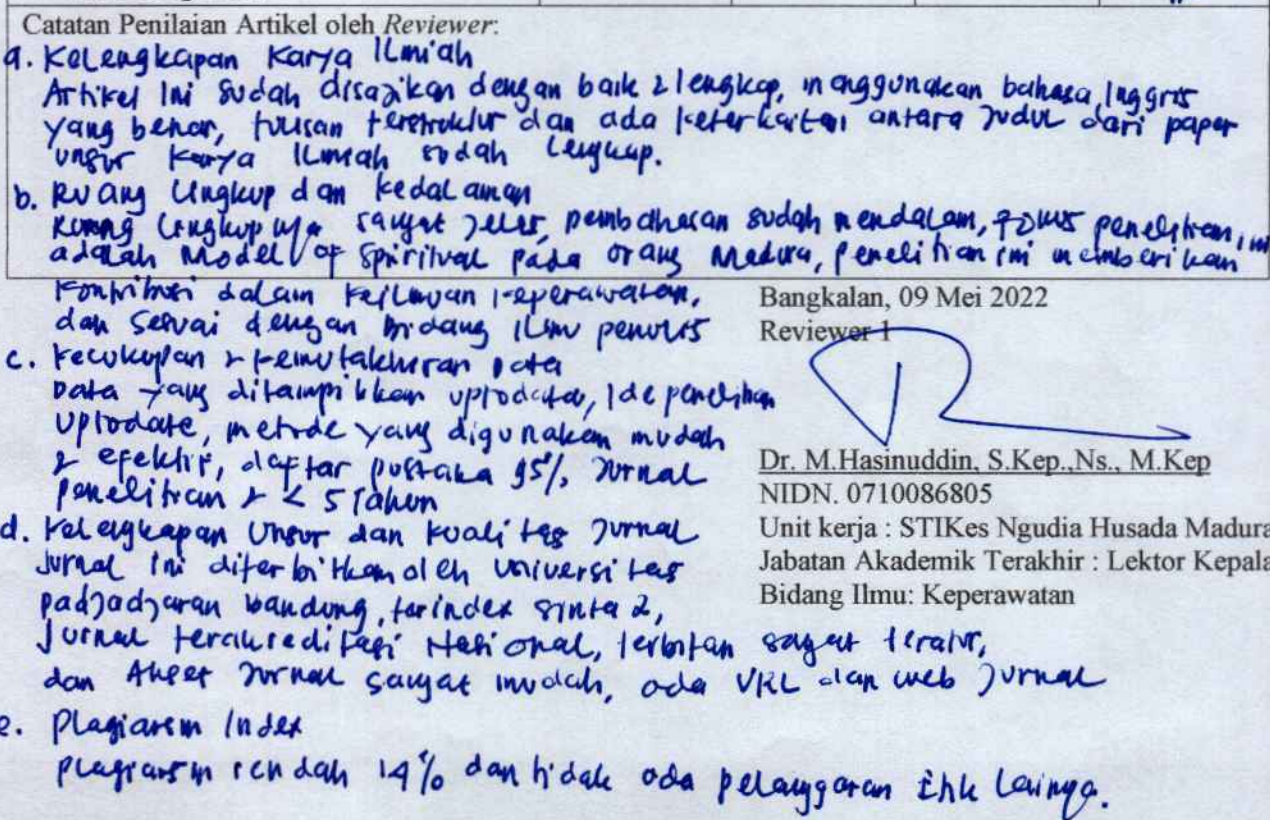 Catatan Penilaian Artikel oleh Reviewer:
a. Kelengkapan Karya Ilmiah
Artikel Ini sudah disajikan dengan baik & lengkap, menggunakan bahasa Inggris
yang benar, tulisan terstruktur dan ada keterkaitan antara judul dari paper
unsur Karya Ilmiah sudah lengkap.
b. Ruang Lingkup dan kedalaman
Ruang Lingkupnya sangat jelas, pembahasan sudah mendalam, fokus penelitian ini
adalah Model of Spiritual pada orang Madura, penelitian ini memberikan
kontribusi dalam keilmuan keperawatan,
dan Sesuai dengan bidang Ilmu penulis
c. Kecukupan & kemutakhiran Data
Data yang ditampilkan uptodate, Ide penelitian
uptodate, metode yang digunakan mudah
& efektif, daftar pustaka 95% Jurnal
penelitian & < 5 Tahun
d. Kelengkapan Unsur dan Kualitas Jurnal
Jurnal ini diterbitkan oleh Universitas
padjadjaran bandung, terindex sinta 2,
Jurnal terakreditasi Nasional, terbitan sangat teratur,
dan Akses Jurnal sangat mudah, ada URL dan web Jurnal
e. Plagiarism Index
plagiarism rendah 14% dan tidak ada pelanggaran Etik lainnya.
Bangkalan, 09 Mei 2022
Reviewer 1
Dr. M.Hasinuddin, S.Kep.,Ns., M.Kep
NIDN. 0710086805
Unit kerja : STIKes Ngudia Husada Madura
Jabatan Akademik Terakhir : Lektor Kepala
Bidang Ilmu: Keperawatan